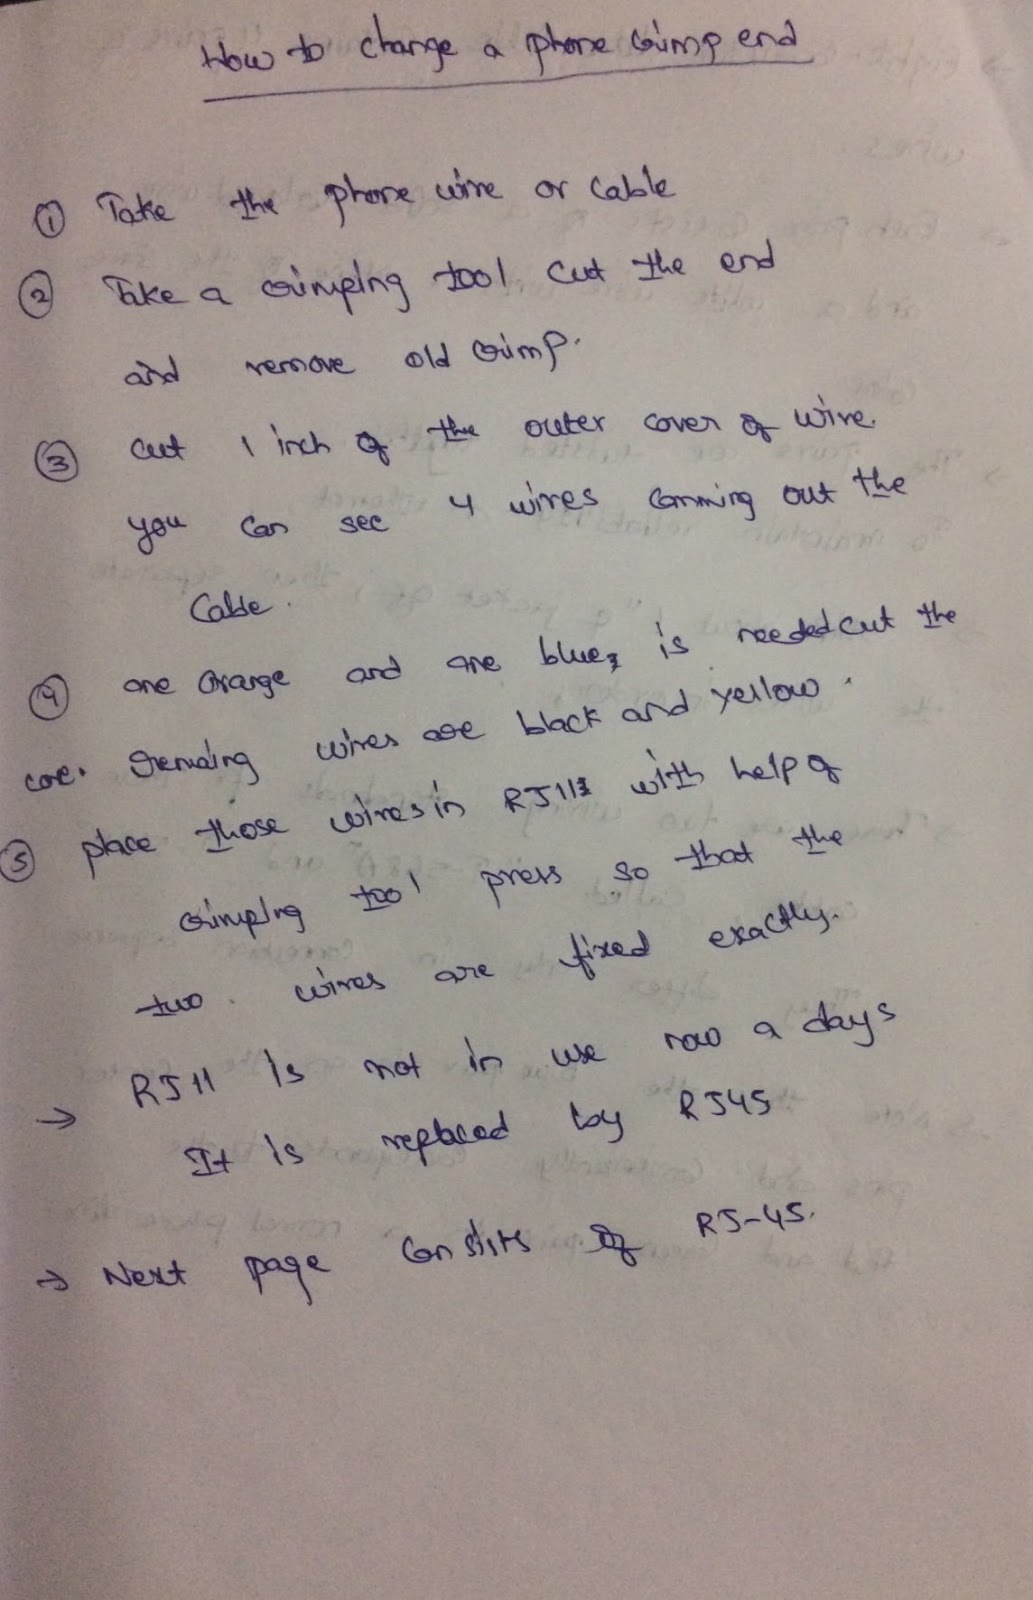 How to change a phone crimp end
① Take the phone wire or cable
② Take a crimping tool cut the end
and remove old crimp.
③ cut 1 inch of the outer cover of wire.
you can see 4 wires comming out the
Cable.
④ one orange and one blue, is needed cut the
core. remaing wires are black and yellow.
⑤ place those wires in RJ11 with help of
crimping tool press so that the
two. wires are fixed exactly.
→ RJ11 is not in use now a days
It is replaced by RJ45
→ Next page Consists of RJ-45.